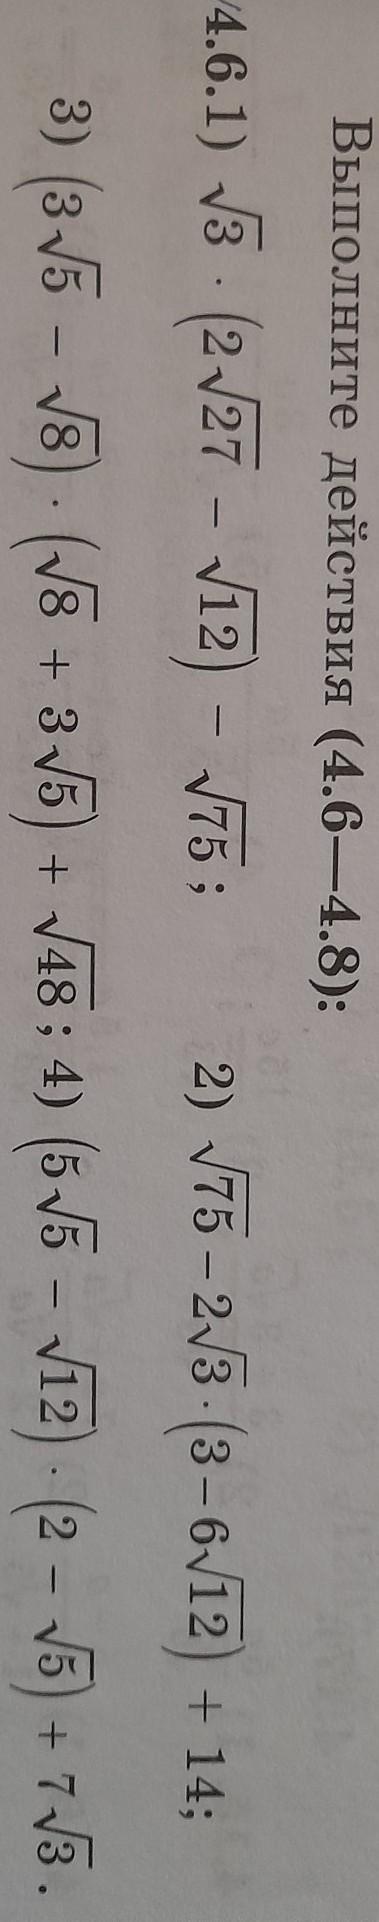 Выполните действия (4.6—4.8):
4.6.1) √3 · (2√27 − √12) − √75; 2) √75 − 2√3 · (3 − 6√12) + 14;
3) (3√5 − √8) · (√8 + 3√5) + √48; 4) (5√5 − √12) · (2 − √5) + 7√3.